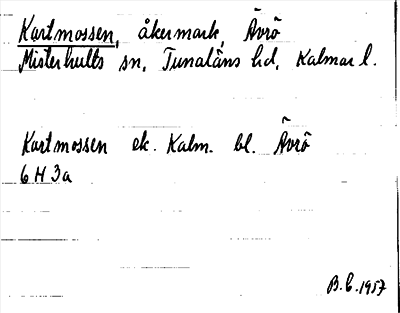 Kartmossen, åkermark, Ävrö
Misterhults sn, Tunaläns hd, Kalmar l.
Kartmossen ek. Kalm. bl. Ävrö
6 H 3a
B.C. 1957